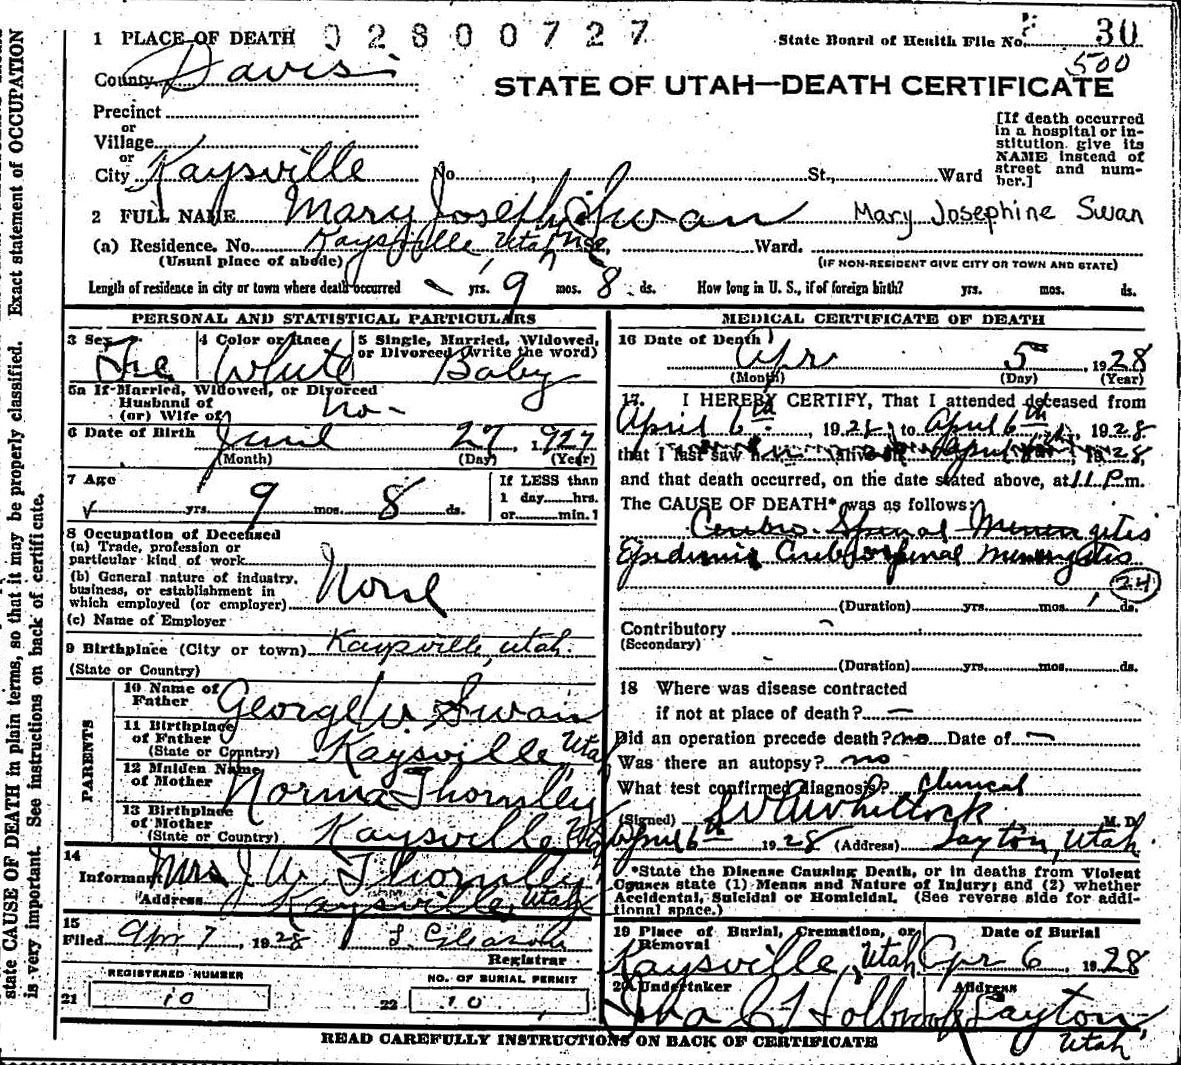 1 PLACE OF DEATH 02800727
State Board of Health File No. 30
500
County Davis
STATE OF UTAH—DEATH CERTIFICATE
Precinct
or
Village
or
City Kaysville No. St., Ward
[If death occurred
in a hospital or in-
stitution give its
NAME instead of
street and num-
ber.]
2 FULL NAME Mary Josephine Swan Mary Josephine Swan
(a) Residence. No. Kaysville, Utah Ward.
(Usual place of abode) (IF NON-RESIDENT GIVE CITY OR TOWN AND STATE)
Length of residence in city or town where death occurred - yrs. 9 mos. 8 ds. How long in U. S., if of foreign birth? yrs. mos. ds.
PERSONAL AND STATISTICAL PARTICULARS
3 Sex 4 Color or Race 5 Single, Married, Widowed,
or Divorced (write the word)
Fe White Baby
5a If Married, Widowed, or Divorced
Husband of
(or) Wife of no-
6 Date of Birth June 27, 1927
(Month) (Day) (Year)
7 Age yrs. 9 mos. 8 ds.
If LESS than
1 day hrs.
or min.
8 Occupation of Deceased
(a) Trade, profession or
particular kind of work
(b) General nature of industry,
business, or establishment in
which employed (or employer) None
(c) Name of Employer
9 Birthplace (City or town) Kaysville, Utah.
(State or Country)
PARENTS
10 Name of
Father George W. Swan
11 Birthplace
of Father
(State or Country) Kaysville, Utah
12 Maiden Name
of Mother Norma Thornley
13 Birthplace
of Mother
(State or Country) Kaysville Utah
14
Informant Mrs J W Thornley
Address Kaysville Utah
15
Filed Apr 7, 1928 L. Gleason
Registrar
REGISTERED NUMBER NO. OF BURIAL PERMIT
21 10 22 10
MEDICAL CERTIFICATE OF DEATH
16 Date of Death Apr 5 1928
(Month) (Day) (Year)
17. I HEREBY CERTIFY, That I attended deceased from
April 6th, 1928, to April 6th, 1928
that I last saw h alive on April 1928,
and that death occurred, on the date stated above, at 11 P.m.
The CAUSE OF DEATH* was as follows:
Cerebro-Spinal Meningitis
Epidemic Cerebrospinal meningitis
24
(Duration) yrs. mos. 1 ds.
Contributory
(Secondary)
(Duration) yrs. mos. ds.
18 Where was disease contracted
if not at place of death? —
Did an operation precede death? no Date of —
Was there an autopsy? no
What test confirmed diagnosis? Clinical
(Signed) Whitlock M. D.
April 6th 1928 (Address) Layton, Utah
*State the Disease Causing Death, or in deaths from Violent
Causes state (1) Means and Nature of Injury; and (2) whether
Accidental, Suicidal or Homicidal. (See reverse side for addi-
tional space.)
19 Place of Burial, Cremation, or
Removal Date of Burial
Kaysville, Utah Apr 6, 1928
20 Undertaker Address
Holbrook Layton,
Utah
READ CAREFULLY INSTRUCTIONS ON BACK OF CERTIFICATE
state CAUSE OF DEATH in plain terms, so that it may be properly classified. Exact statement of OCCUPATION
is very important. See instructions on back of certificate.